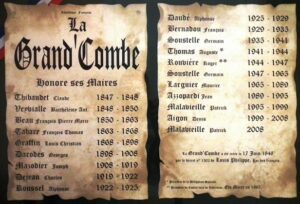 République Française
La
Grand'Combe
Honore ses Maires
Thibaudet Claude 1847 - 1848
Veysialle Barthélemy Ant. 1848 - 1850
Beau François Pierre Marie 1850 - 1863
Tabare François Thomas 1863 - 1868
Graffin Louis Christian 1868 - 1898
Dacodes Georges 1898 - 1908
Mazodier Joseph 1908 - 1919
Dejean Charles 1919 - 1922
Roussel Alphonse 1922 - 1925
Daudé Alphonse 1925 - 1929
Bernadou François 1929 - 1931
Soustelle Germain 1931 - 1941
Thomas Auguste * 1941 - 1944
Rouvière Roger ** 1944 - 1947
Soustelle Germain 1947 - 1965
Larguier Maurice 1965 - 1989
Azzopardi Jean 1989 - 1995
Malavieille Patrick 1995 - 1999
Aigon Denis 1999 - 2008
Malavieille Patrick 2008
La Grand'Combe a été créée le 17 Juin 1846
par le décret n° 1302 de Louis Philippe, Roi des Français.